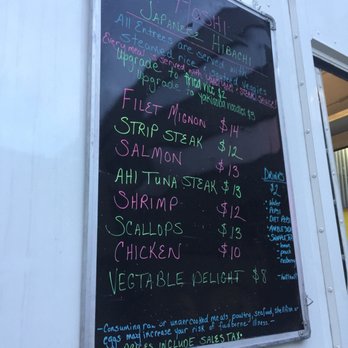 HOSHI
JAPANESE HIBACHI
All Entrees are served with
steamed rice & veggies
Every meal served with steak sauce
Upgrade to fried rice $2
Upgrade to yakisoba noodles $3
FILET MIGNON $14
STRIP STEAK $12
SALMON $13
AHI TUNA STEAK $13
SHRIMP $12
SCALLOPS $13
CHICKEN $10
VEGTABLE DELIGHT $8
DRINKS
$2
- Water
- PEPSI
- DIET PEPSI
- peach
-Consuming raw or undercooked meats, poultry, seafood, shellfish or
eggs may increase your risk of foodborne illness.-
INCLUDE SALES TAX